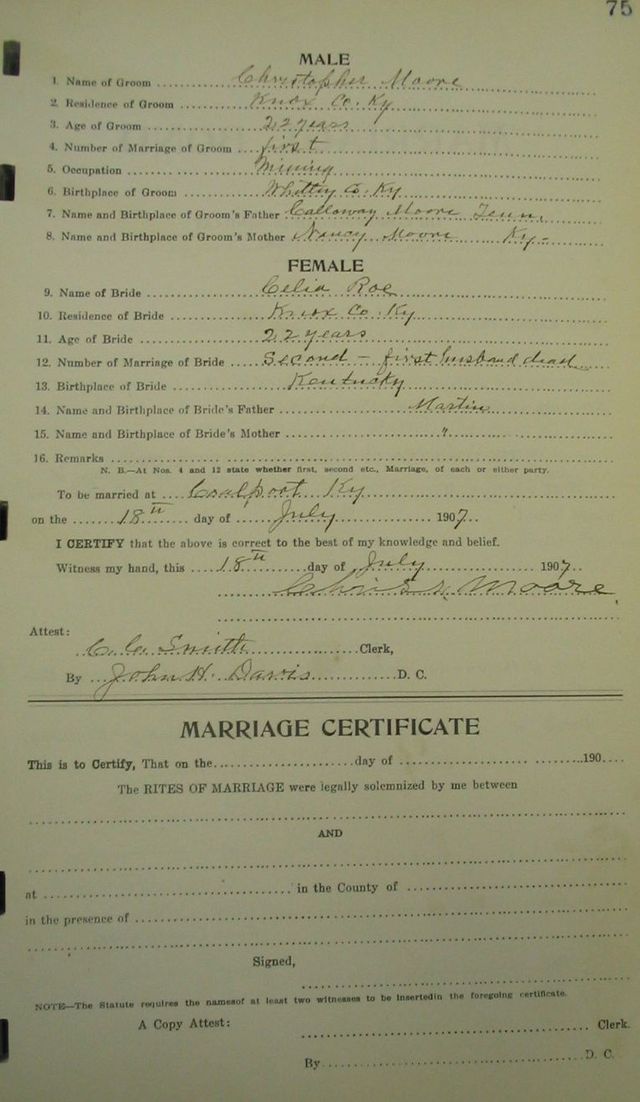 75
MALE
1. Name of Groom Christopher Moore
2. Residence of Groom Knox Co. Ky
3. Age of Groom 22 years
4. Number of Marriage of Groom first
5. Occupation Mining
6. Birthplace of Groom Whitley Co. Ky
7. Name and Birthplace of Groom's Father Calloway Moore Tenn.
8. Name and Birthplace of Groom's Mother Nancy Moore Ky-
FEMALE
9. Name of Bride Celia Roe
10. Residence of Bride Knox Co. Ky
11. Age of Bride 22 years
12. Number of Marriage of Bride Second - first husband dead
13. Birthplace of Bride Kentucky
14. Name and Birthplace of Bride's Father Martin
15. Name and Birthplace of Bride's Mother "
16. Remarks
N. B.—At Nos. 4 and 12 state whether first, second etc., Marriage, of each or either party.
To be married at Coalport Ky
on the 18th day of July 1907
I CERTIFY that the above is correct to the best of my knowledge and belief.
Witness my hand, this 18th day of July 1907
Moore
Attest:
Smith Clerk,
By John H. Davis D. C.
MARRIAGE CERTIFICATE
This is to Certify, That on the day of 190
The RITES OF MARRIAGE were legally solemnized by me between
AND
at in the County of
in the presence of
Signed,
NOTE—The Statute requires the namesof at least two witnesses to be insertedin the foregoing certificate.
A Copy Attest: Clerk.
By D. C.